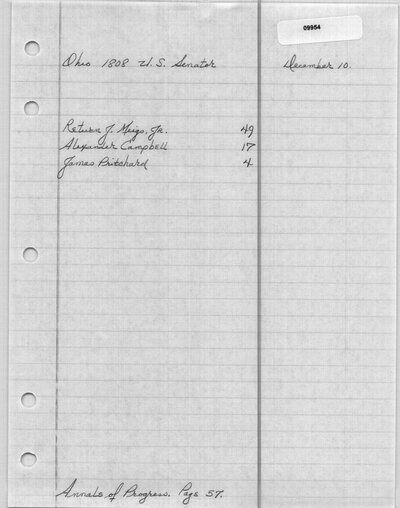 09954
Ohio 1808 U.S. Senator December 10.
Return J. Meigs, Jr. 49
Alexander Campbell 17
James Pritchard 4
Annals of Progress. Page 57.